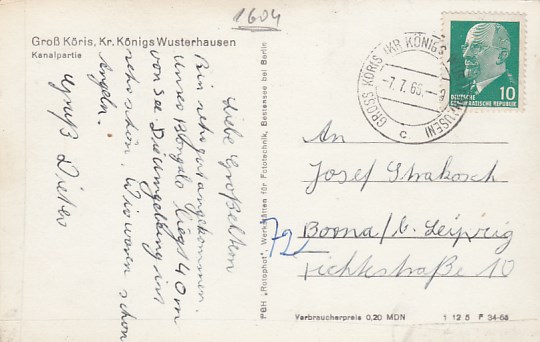 1604
Groß Köris, Kr. Königs Wusterhausen
Kanalpartie
Liebe Großeltern
Bin sehr gut angekommen.
unser Bongalo liegt 40 m
von See. Die Umgebung ist
sehr schön. Wir waren schon
Angeln.
Gruß Dieter
PGH „Rotophot“, Werkstätten für Fototechnik, Bestensee bei Berlin
GROSS KÖRIS (KR KÖNIGS WUSTERHAUSEN)
-7.7.65.-9
c
10
DEUTSCHE
DEMOKRATISCHE REPUBLIK
An
Josef Strakosch
72
Borna/b. Leipzig
Fichtestraße 10
Verbraucherpreis 0,20 MDN
1 12 5 F 34-65